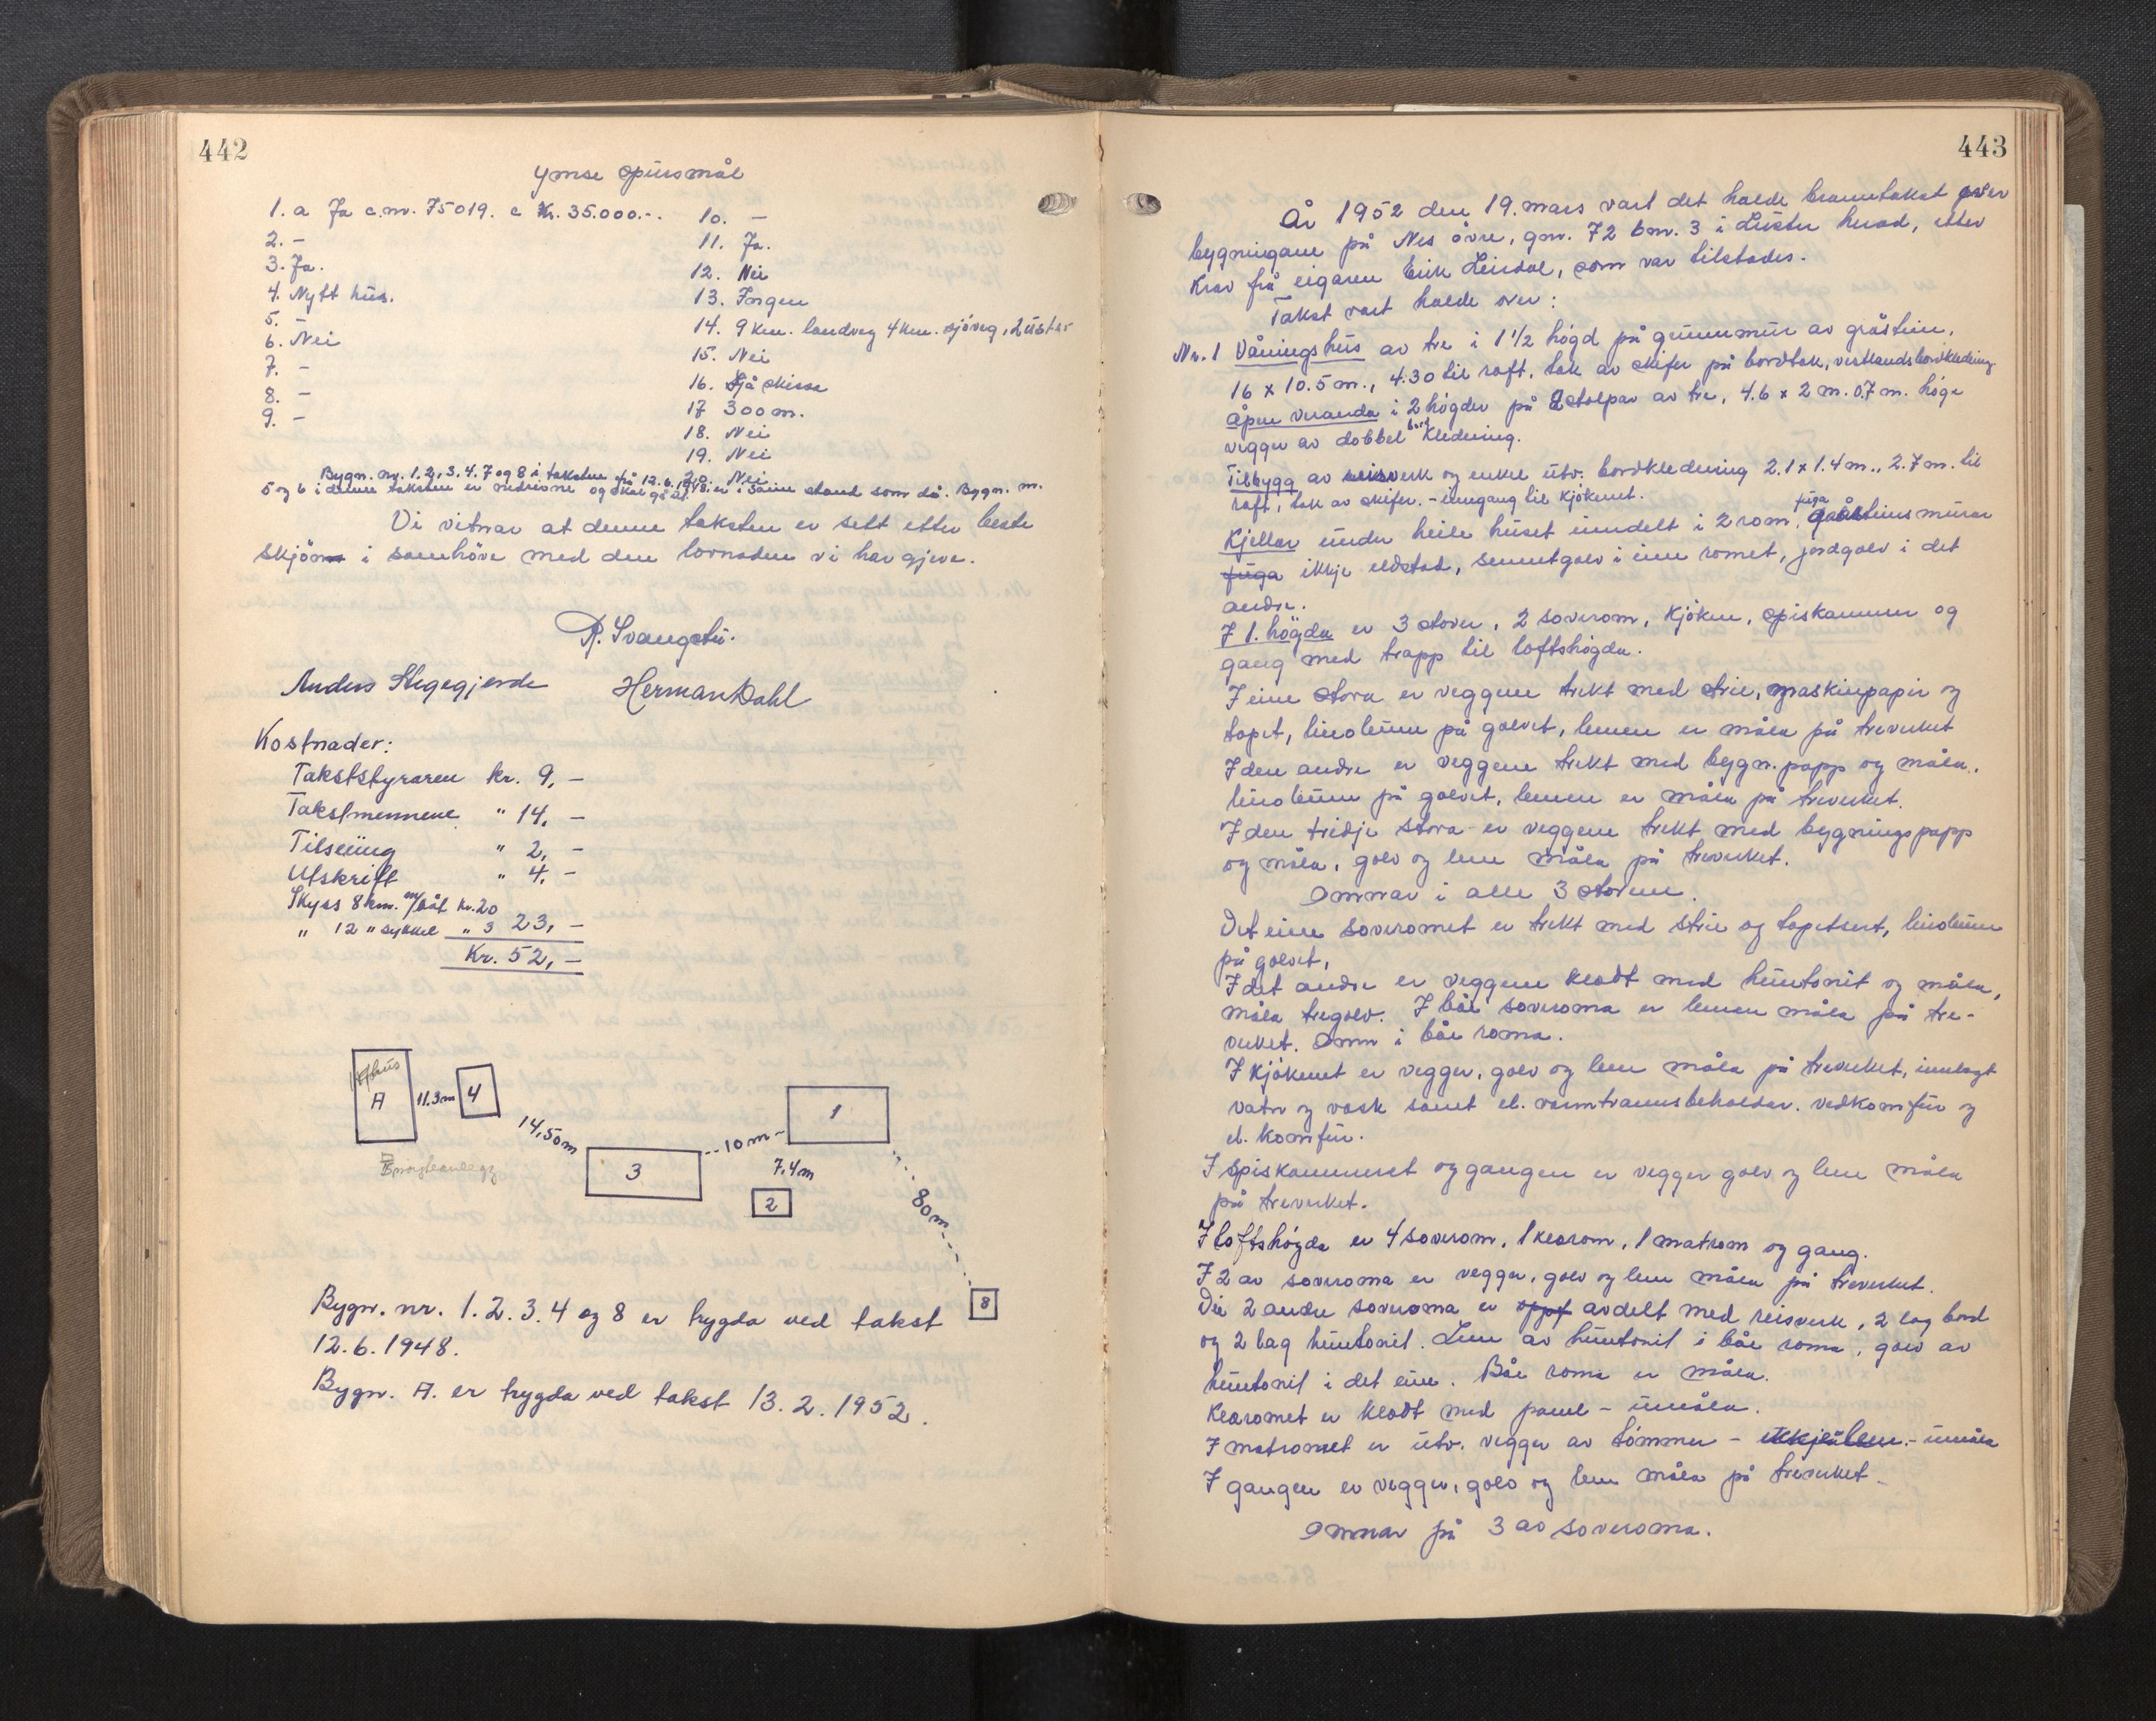 442
Ymse spursmål
1. a Ja c.nr. 75019. c Kr. 35.000.-.
2. -
3. Ja.
4. Nytt hus.
5. -
6. Nei
7. -
8. -
9. -
10. -
11. Ja.
12. Nei
13. Ingen
14. 9 km. landveg 4 km. sjöveg, Luster
15. Nei
16. Sjå skisse
17 300 m.
18. Nei
19. Nei
20. Nei
Bygn. nr. 1, 2, 3, 4, 7 og 8 i taksten frå 12.6.1948. er i same stand som då. Bygn. nr.
5 og 6 i denne taksten er nedrivne og skal gå ut.
Vi vitnar at denne taksten er sett etter beste
skjön i samhöve med den lovnaden vi har gjeve.
P. Svangstu.
Anders Stegegjerde Herman Dahl
Kostnader:
Takststyraren kr. 9, -
Takstmennene " 14, -
Tilseiing " 2, -
Utskrift " 4, -
Skyss 8 km. m/båt kr. 20
" 12 " sykkel " 3 23, -
Kr. 52, -
A
11.3m
4
14,50m
3
10m
1
7,4m
2
80m
8
Bygn. nr. 1. 2. 3. 4 og 8 er trygda ved takst
12.6.1948.
Bygn. A. er trygda ved takst 13.2.1952.
443
År 1952 den 19. mars vart det halde branntakst over
bygningane på Nes övre, gnr. 72 bnr. 3 i Luster herad, etter
krav frå eigaren Eirik Leirdal, som var tilstades.
Takst vart halde over:
Nr. 1 Våningshus av tre i 1 1/2 högd på grunnmur av gråstein,
16 x 10.5 m., 4.30 til raft, tak av skifer på bordtak, vestlandsbordkledning
Åpen veranda i 2 högder på 2 stolpar av tre, 4.6 x 2 m. 0.7 m. höge
vegger av dobbel bord kledning.
Tilbygg av reisverk og enkel utv. bordkledning 2.1 x 1.4 m., 2.7 m. til
raft, tak av skifer. - inngang til kjökenet.
Kjellar under heile huset inndelt i 2 rom, fuga gråsteinsmurar
fuga ikkje eldstad, sementgolv i eine romet, jordgolv i det
andre.
I 1. högda er 3 stover, 2 soverom, kjöken, spiskammer og
gang med trapp til loftshögda.
I eine stova er veggene trekt med strie, maskinpapir og
tapet, linoleum på golvet, lemen er måla på treverket
I den andre er veggene trekt med bygn. papp og måla,
linoleum på golvet, lemen er måla på treverket.
I den tridje stova er veggene trekt med bygningspapp
og måla, golv og lem måla på treverket.
Omnar i alle 3 stovene.
Det eine soveromet er trekt med strie og tapetsert, linoleum
på golvet,
I det andre er veggene kledt med huntonit og måla,
måla tregolv. I båe soveroma er lemen måla på tre-
verket. Omn i båe roma.
I kjökenet er vegger, golv og lem måla på treverket, innlagt
vatn og vask samt el. varmtvannsbeholdar. vedkomfur og
el. komfur.
I spiskammerset og gangen er vegger golv og lem måla
på treverket.
I loftshögda er 4 soverom, 1 klerom, 1 matrom og gang.
I 2 av soveroma er vegger, golv og lem måla på treverket.
Dei 2 andre soveroma er oppf avdelt med reisverk, 2 lag bord
og 2 lag huntonit. Lem av huntonit i båe roma, golv av
huntonit i det eine. Båe roma er måla.
Kleromet er kledt med panel - umåla.
I matromet er utv. vegger av tömmer - - umåla
I gangen er vegger, golv og lem måla på treverket -
Omnar på 3 av soveroma.